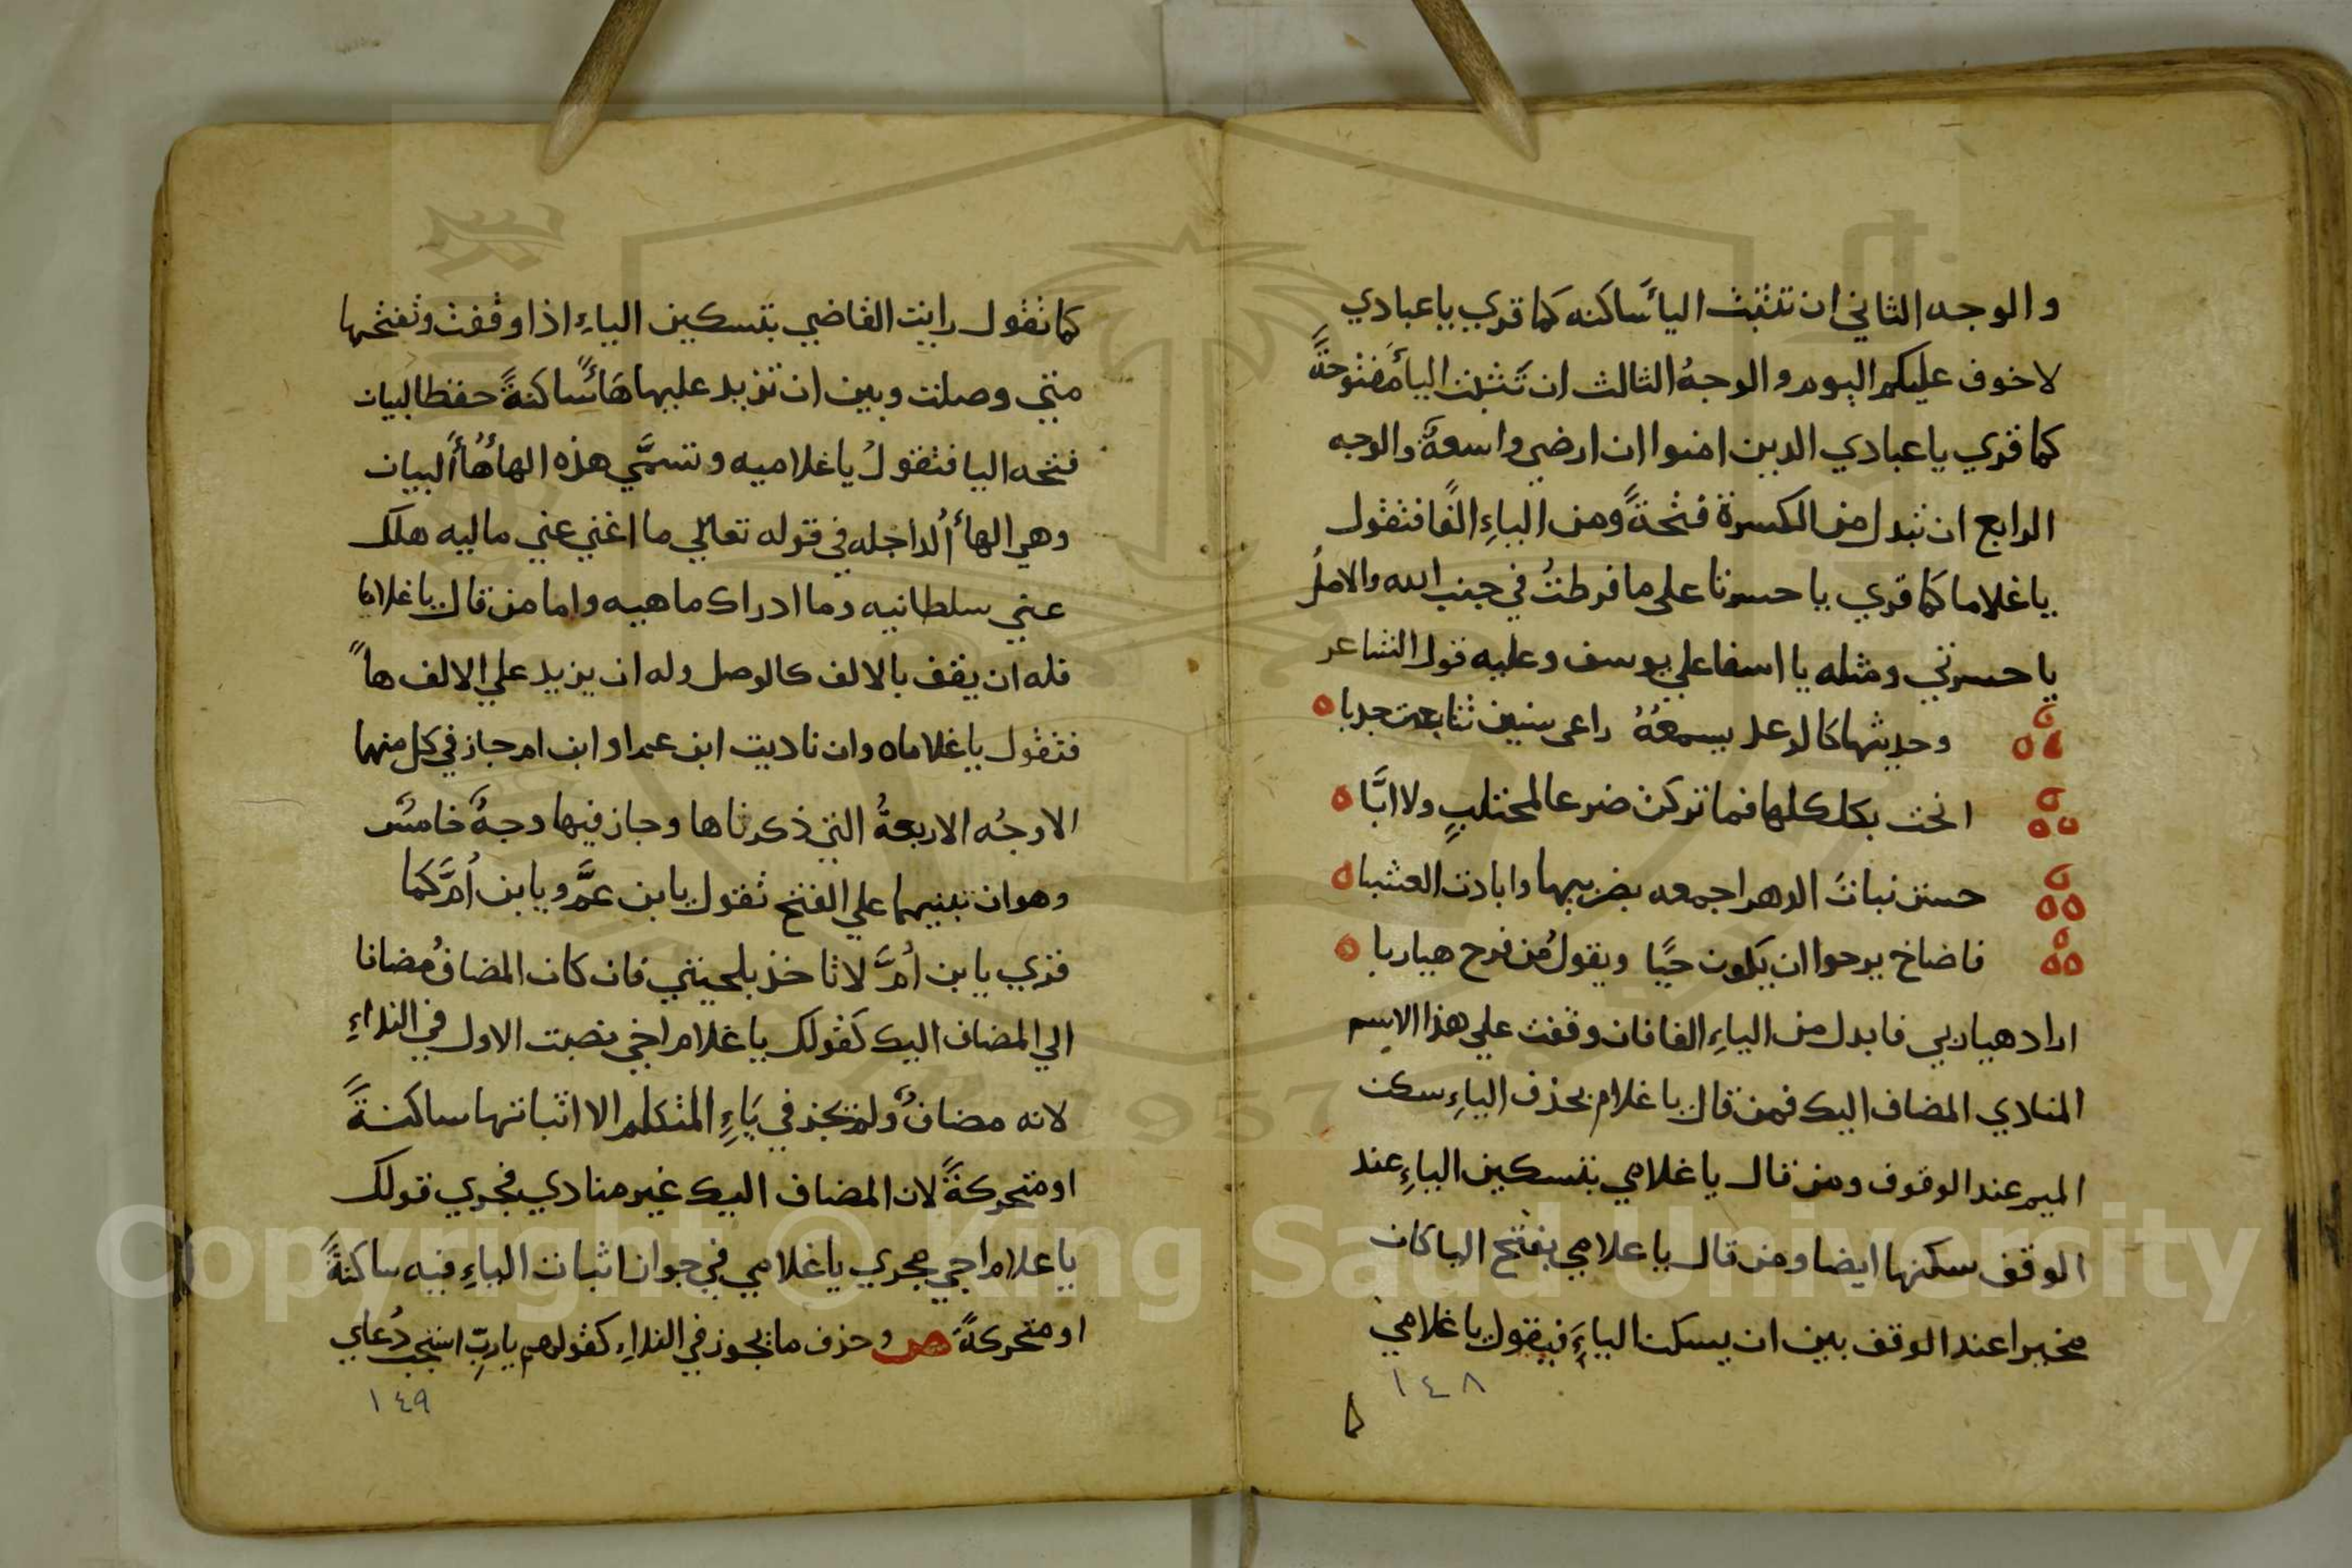 والوجه الثاني ان تثبت الياَ ساكنه كما قري يا عبادي
لاخوف عليكم اليوم والوجهُ الثالث ان تَثبت الياَ مفتوحةً
كما قري يا عبادي الدين امنوا ان ارضي واسعةً والوجه
الرابع ان تبدل من الكسرة فتحةً ومن الياءِ الفًا فتقول
يا غلاما كما قري يا حسرتا على ما فرطتُ في جنب الله والاصلُ
يا حسرتي ومثله يا اسفا علي يوسف وعليه قول الشاعر
وحديثها كالرعد يسمعهُ راعى سنين تتابعت جدبا
انحت بكلكلها فما تركن ضرعا لمحتلبٍ ولا ابَّا
حستن نباتَ الدهر اجمعه بضريبها وابادت العشبا
فاضاخ يرجوا ان يكون حيًا ويقول من فرح هيا ربا
اراد هيا ربي فابدل من الياءِ الفا فان وقفت علي هذا الاسم
المنادي المضاف اليك فمن قال يا غلام بحذف الياءِ سكن
الميم عند الوقوف ومن قال يا غلامي بتسكين الياءِ عند
الوقف سكنها ايضا ومن قال يا غلامي بفتح اليا كان
مخيرا عند الوقف بين ان يسكن الياءَ فيقول يا غلامي
١٤٨
كما تقول رايت القاضي بتسكين الياءِ اذا وقفت وتفتحها
متي وصلت وبين ان تزيد عليها هَاءً ساكنةً حفظا لبيان
فتحه اليا فتقولُ يا غلاميه وتسمَّي هذه الهاءُ هاءَ البيان
وهي الهاءُ الداخله في قوله تعالي ما اغني عني ماليه هلك
عني سلطانيه وما ادراك ماهيه واما من قال يا غلاما
فله ان يقف بالالف كالوصل وله ان يزيد علي الالف هاً
فتقول يا غلاماه وان ناديت ابن عم او ابن ام جاز في كل منهما
الاوجُه الاربعةُ التي ذكرناها وجاز فيها وجهٌ خامسٌ
وهو ان تبنيهما علي الفتح تقول يا بن عمَّ ويا بن اُمَّ كما
قري يا بن اُمَّ لا تاخذ بلحيتي فان كان المضافُ مُضافا
الي المضاف اليك كقولك يا غلام اخي نصبت الاول في النداءِ
لانه مضافٌ ولم تجز في يَاءِ المتكلم الا اثباتها ساكنةً
او متحركةً لان المضاف اليك غير منادي فجري قولك
يا علام اجي مجري يا غلامي في جواز اثبات الياءِ فيه ساكنةً
او متحركةً ص وحذف ما يجوز في النداءِ كقولهم يا ربِّ استجب دُعاي
١٤٩
Copyright © King Saud University
1957